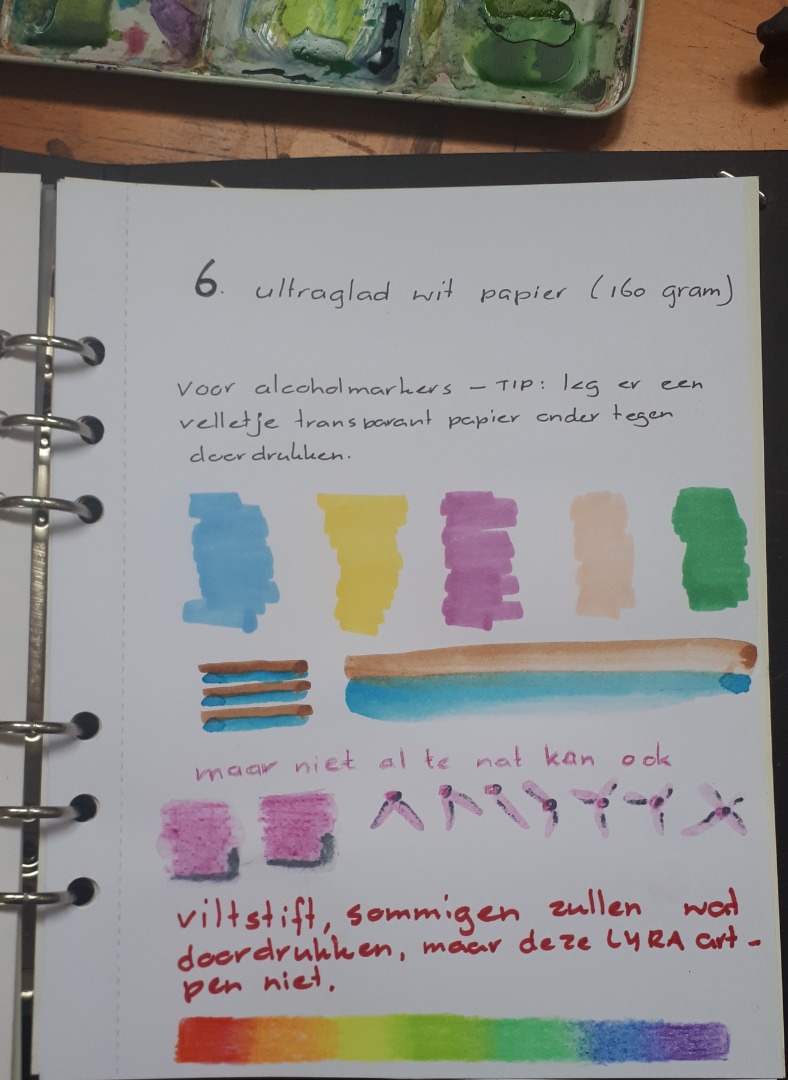 6. ultraglad wit papier (160 gram)
voor alcoholmarkers – TIP: leg er een
velletje transparant papier onder tegen
doordrukken.
maar niet al te nat kan ook
viltstift, sommigen zullen wat
doordrukken, maar deze LYRA art-
pen niet.